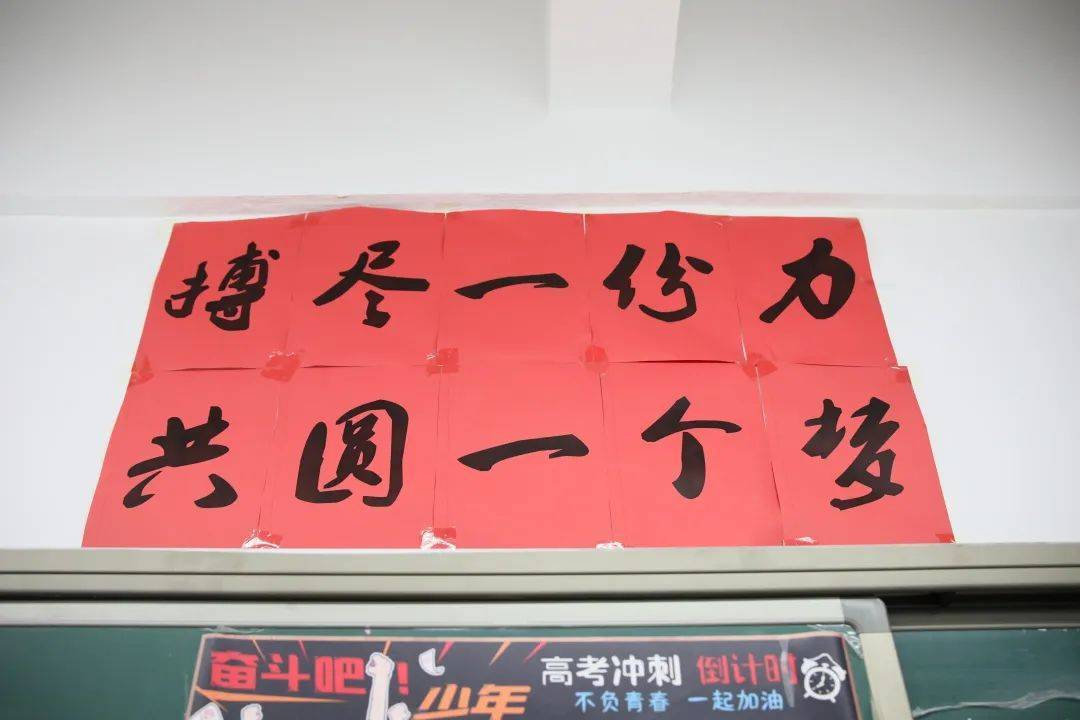 搏尽一份力
共圆一个梦
奋斗吧!!
少年
高考冲刺 倒计时
不负青春 一起加油